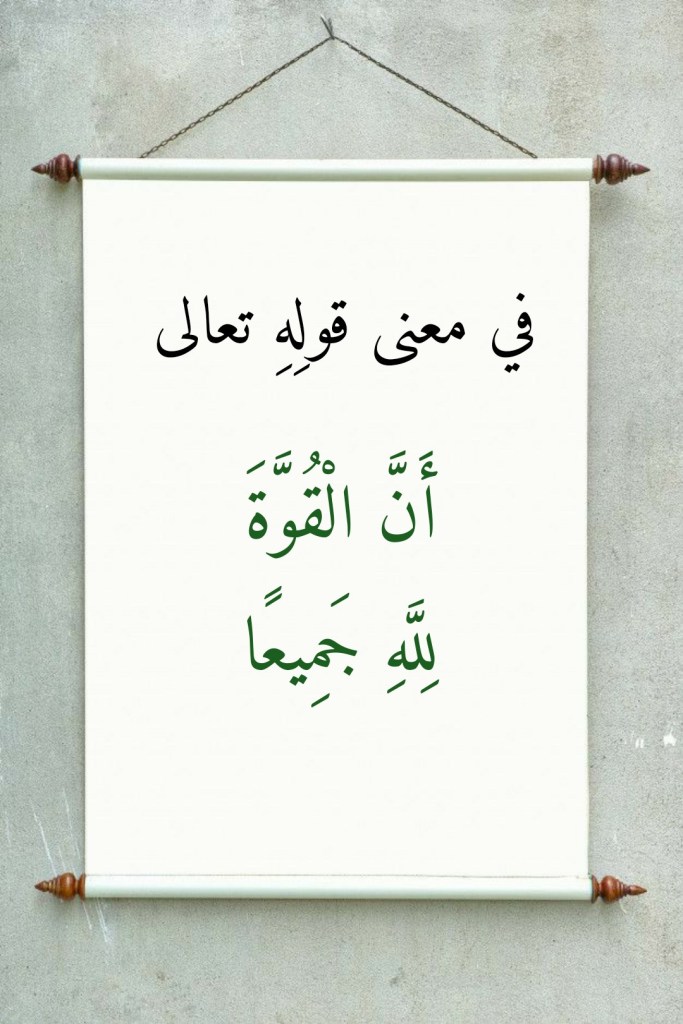 في معنى قولِهِ تعالى
أَنَّ الْقُوَّةَ
لِلَّهِ جَمِيعًا